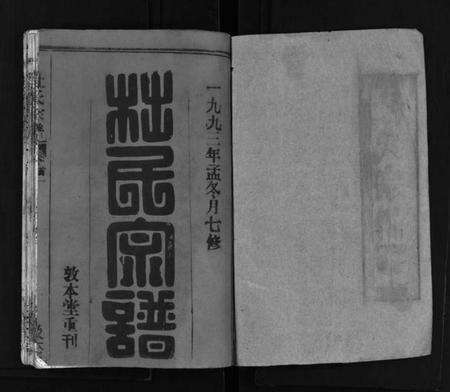 一九九三年孟冬月七修
杜氏宗譜
敦本堂重刊